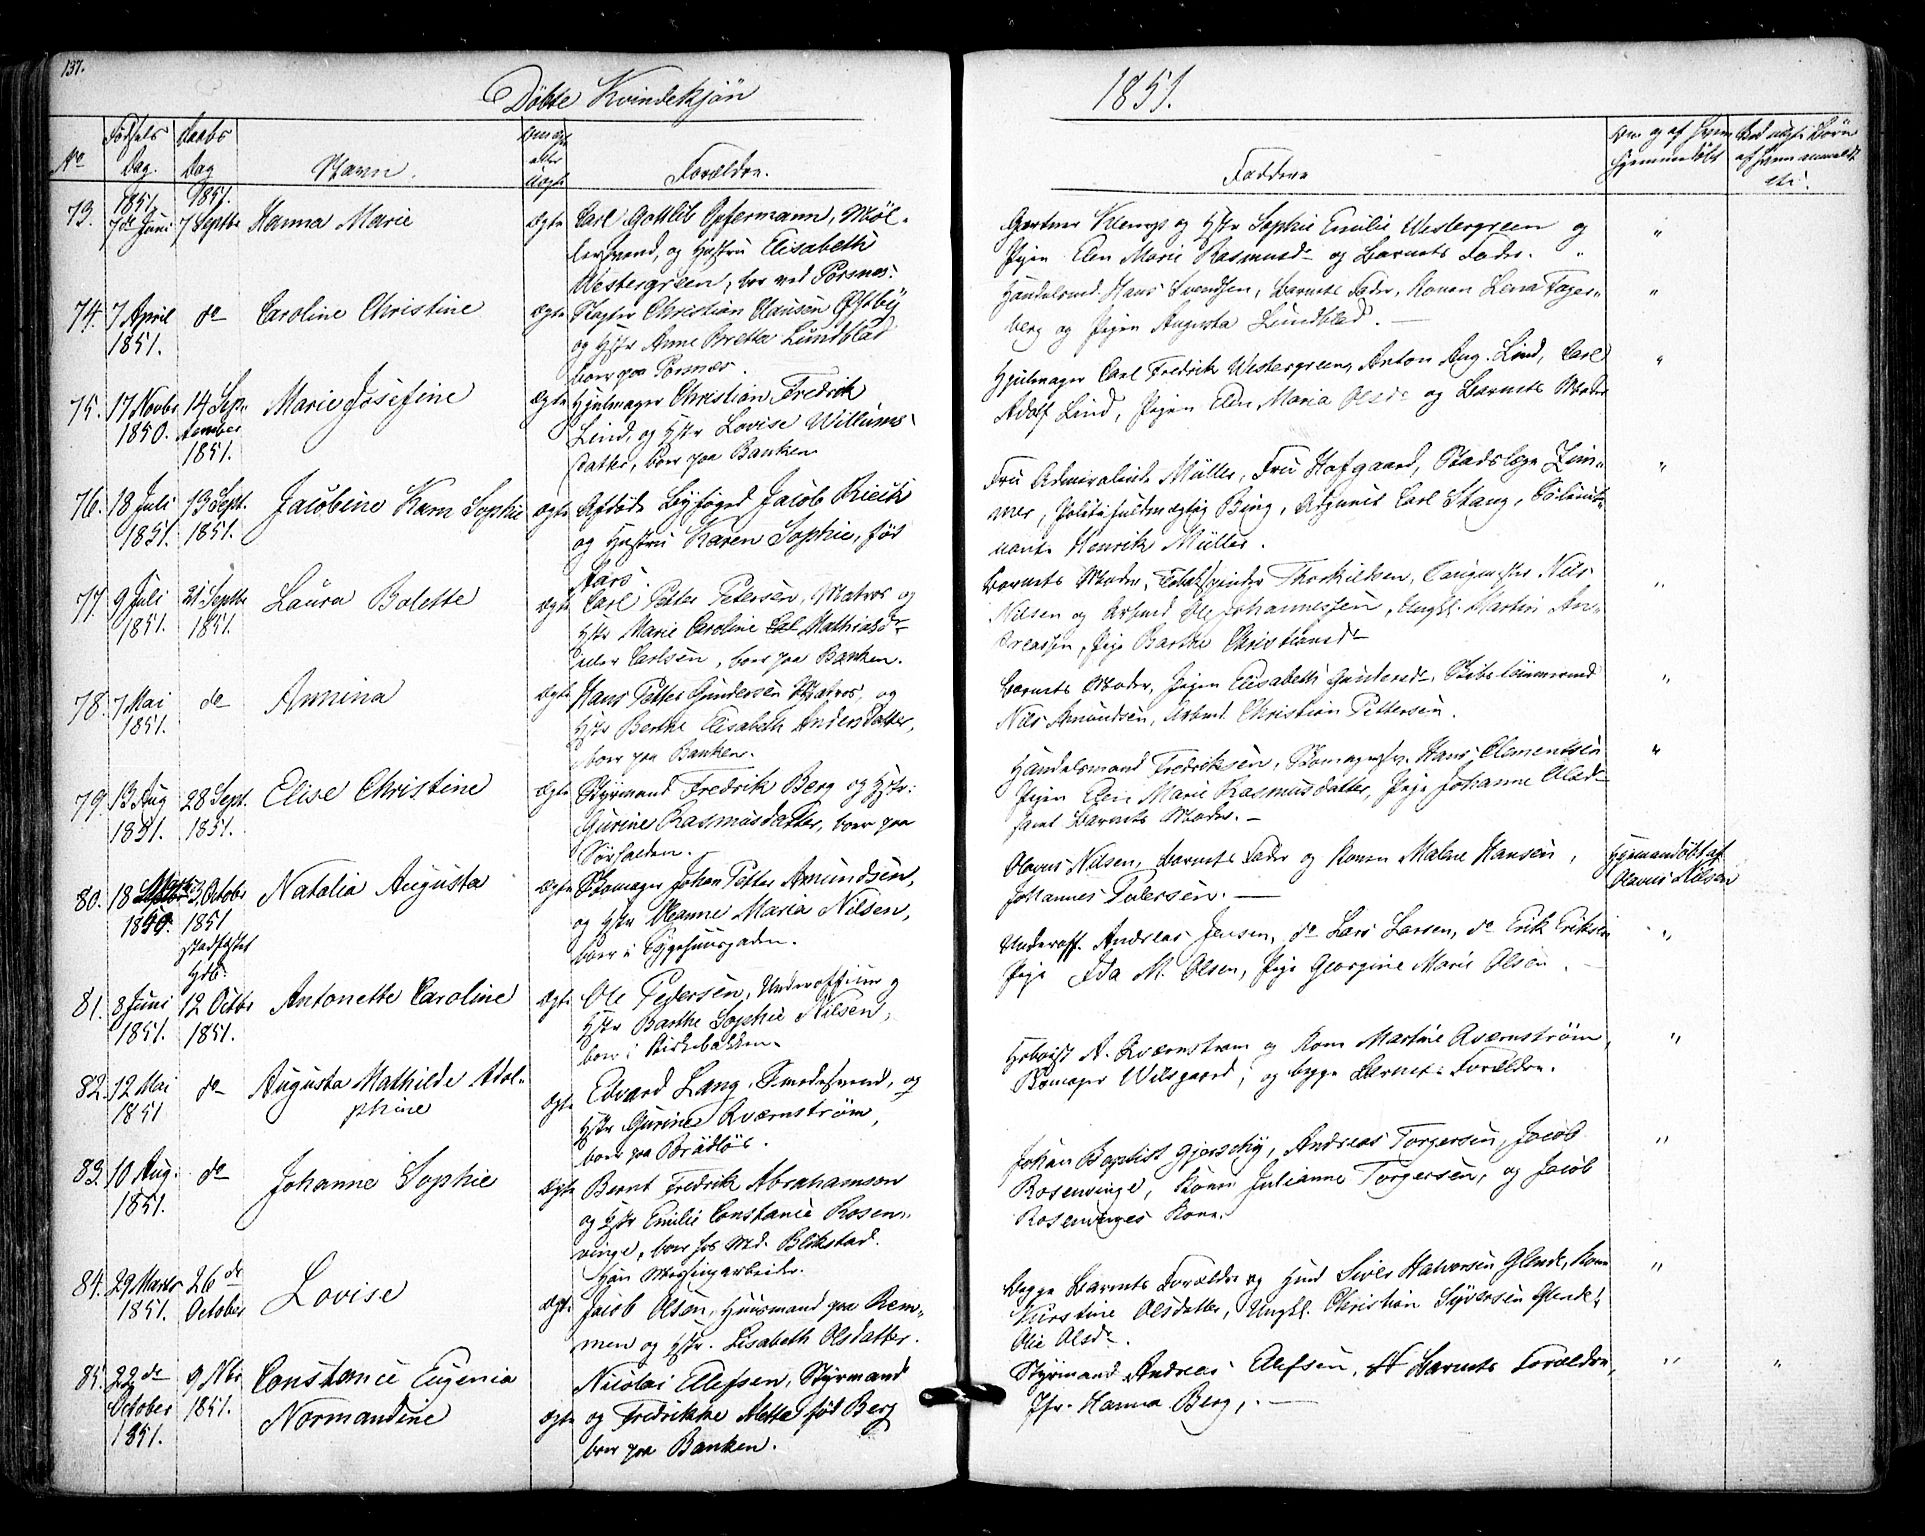 137.
Döbte Kvindekjön
1851.
No
Födsels Dag.
Daabs Dag
Navn.
Ægte eller Uægte
Forældre.
Faddere
73. 1851 7de Juni 1851. 7 Septbr Hanna Marie Ægte Carl Gottlib Opfermann, Möl-
lersvend, og Hustru Elisabeth
Westergreen, boe ved Porsnes.
Gartner Klemp og Hstr Sophie Emilie Westergreen og
Pigen Elen Marie Rasmusdr og Barnets Fader. "
74. 7 April 1851. do Caroline Christine Ægte Slagter Christian Clausen Östbÿ
og Hstr Anne Bretta Lundblad
boer paa Porsnæs.
Handelsmd Hans Svendsen, Barnets Fader, Konen Lena Fager-
berg og Pigen Augusta Lundblad. —
75. 17 Novbr 1850. 14 September 1851. Marie Josefine Ægte Hjulmager Christian Fredrik
Lind, og Hstr Lovise Willums-
datter, boer paa Banken
Hjulmager Carl Fredrik Westergreen, Anton Aug. Lind, Carl
Adolf Lind, Pigen Elen Maria Olsdr og Barnets Moder
76. 18 Juli 1851. 13 Sept. 1851. Jacobine Karn Sophie Ægte Afdöde Byfoged Jacob
og Hustru Karen Sophie, föd
Lars.
Fru Admiralinde Müller, Fru Hofgaard, Stadslege Zim-
mer, Politifuldmægtig Bing, Carl Stang,
Henrik Müller.
77. 9 Juli 1851. 21 Septbr 1851. Laura Bolette Ægte Carl Petter Petersen, Matros og
Hstr Marie Caroline Mathiasdr
eller Carlsen, boer paa Banken.
Barnets Moder, Thorkildsen, Nils
Nilsen og Arbmd Ole Johannessen, Ungkl. Martin An-
dreassen, Pige Barthe Christiansdr
78. 7 Mai 1851. do Annina Ægte Hans Petter Gundersen Matros, og
Hstr Berthe Elisabeth Andersdatter,
boer paa Banken.
Barnets Moder, Pigen Elisabeth Gundersdr, Skibstömmermd
Nils Amundsen, Arbmd. Christian Pettersen.
79. 13 Aug 1851. 28 Sept. 1851. Elise Christine Ægte Styrmand Fredrik Berg og Hstr:
Gurine Rasmusdatter, boer paa
Sörhalden.
Handelsmand Fredriksen, Skomagersv. Hans Clementsen
Pigen Elen Marie Rasmusdatter, Pige Johanne Olsdr
samt Barnets Moder. —
80. 18 1850. 3 Octobr 1851 stadfæstet Hdb. Natalia Augusta Ægte Skomager Johan Petter Amundsen,
og Hstr Oleanne Maria Nilsen,
boer i Sygehuusgaden.
Olavus Nilsen, Barnets Fader og Konen Malene Hansen,
Johannes Pedersen. —
Hjemmedöbt af
Olavus Nilsen
81. 8 Juni 1851. 12 Octbr 1851. Antonette Caroline Ægte Ole Pedersen, Underofficier og
Hstr Barthe Sophie Nilsen,
boer i Kirkebakken.
Underoff. Andreas Jensen, do Lars Larsen, do Erik Eriksen
Pige Ida M. Olsen, Pige Georgine Marie Olsen. —
82. 12 Mai 1851 do Augusta Mathilde Adol-
phine Ægte Edvard Lang, Smedesvend, og
Hstr Gurine Kværnström,
boer paa Brödlös.
Hoboist A. Kværnström og Kone Martine Kværnström,
Skomager Wilsgaard, og begge Barnets Forældre.
83. 10 Aug. 1851. do Johanne Sophie Ægte Bernt Fredrik Abrahamson
og Hstr Emilie Constance Rosen-
vinge, boer hos Md. Blikstad.
Han Messingarbeider.
Johan Baptist, Andreas Torgersen, Jacob
Rosenvinge, Konen Julianne Torgersen, og Jacob
Rosenvinges Kone.
84. 29 Marts 1851. 26de October Lovise Ægte Jacob Olsen, Huusmand paa Rem-
men og Hstr. Lisabeth Olsdatter.
Begge Barnets Forældre og Huusmd Siver Halvorsen Glende, Kone
Kirstine Olsdatter, Ungkl. Christian Syversen Glende,
Olie Olsdr.
85. 22de October 1851. 9 Nbr 1851. Constance Eugenia
Normandine Ægte Nicolai Ellefsen, Styrmand
og Fredrikke Mette föd Berg
boer paa Banken.
Styrmand Andreas Ellefsen, Barnets Forældre,
Jfr. Hanna Berg. —